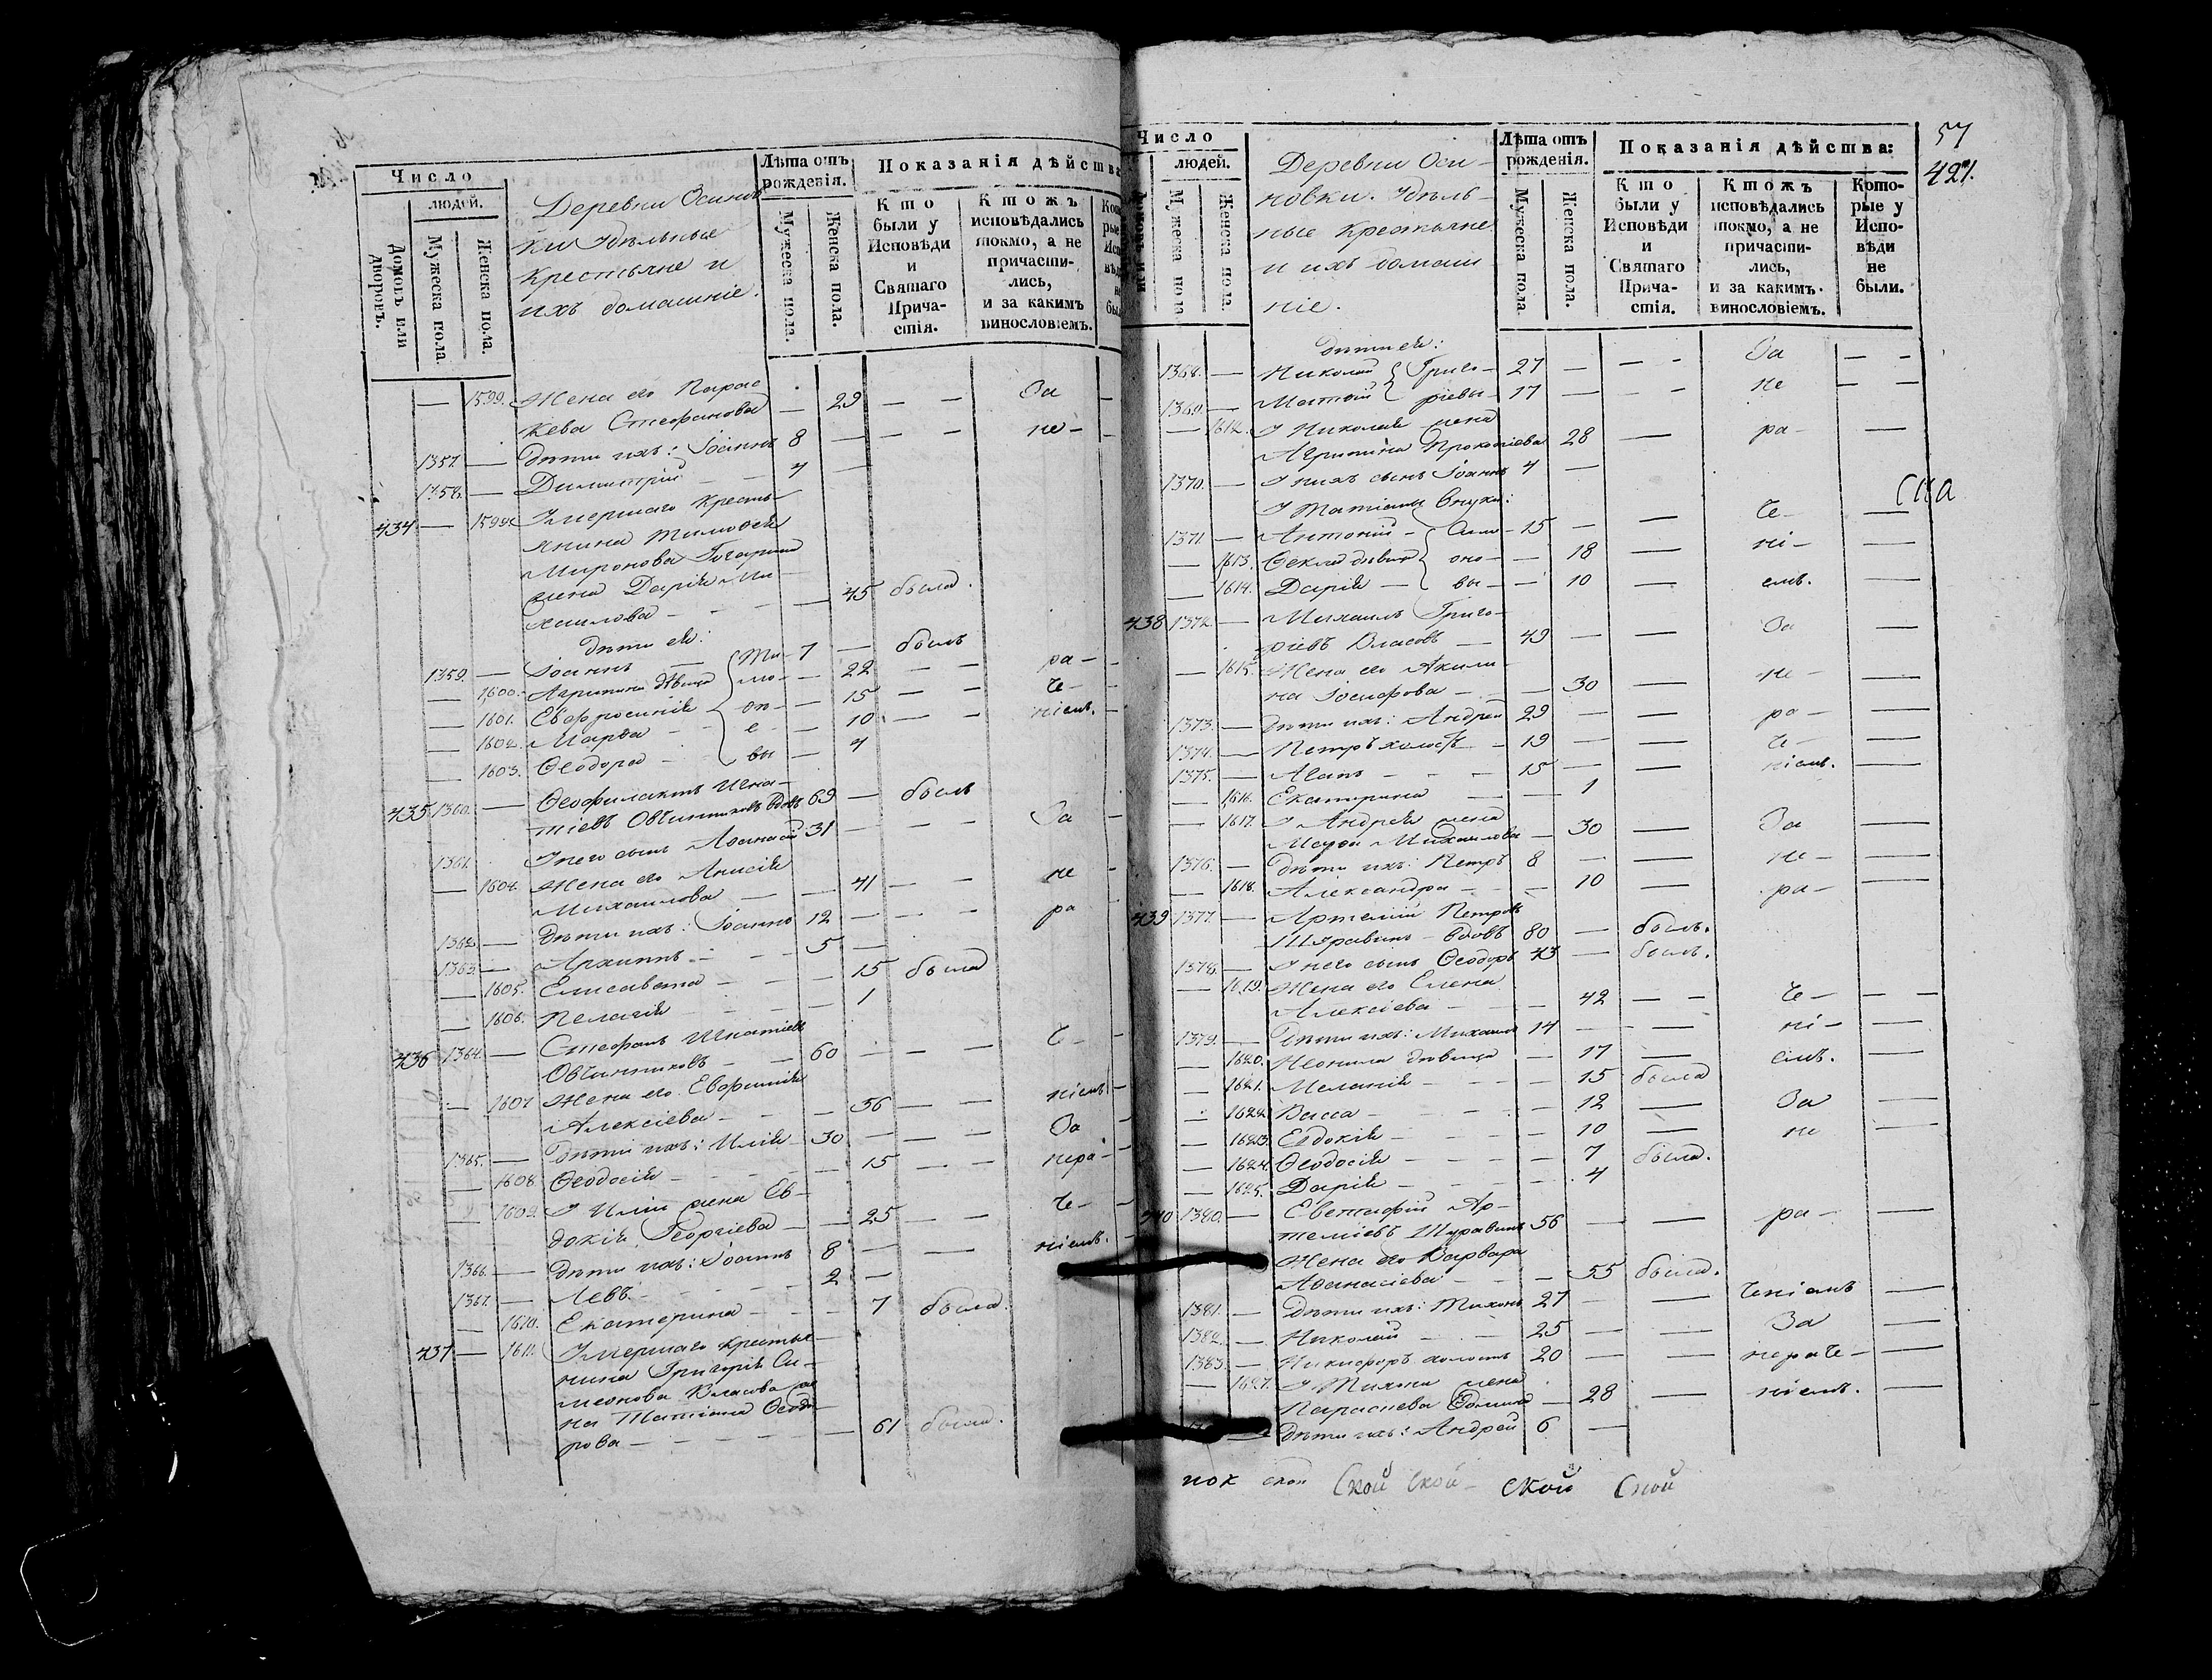 Число
людей.
Домовъ или дворовъ.
Мужеска пола.
Женска пола.
Деревни Осинов
ки удѣльные
крестьяне и
ихъ домашніе.
Лѣта отъ рожденія.
Мужеска пола.
Женска пола.
Показанія дѣйства
Кто были у Исповѣди и Святаго Причастія.
Ктожъ исповѣдались токмо, а не причастились, и за какимъ винословіемъ.
— 1599. Жена его Парас
кева Стефанова — 29 — — За —
1357. — Дѣти ихъ: Іоаннъ 8 — — — не —
1358. — Димитрій — — 4 —
434 — 1599. Умершаго кресть
янина Тимофея
Миронова
жена Дарія Ми
хаилова — — — 45 была.
дѣти ея:
1359. — Іоаннъ — Ти 7 — былъ
— 1600. Агрипина дѣвица мо — 22 — — ра —
— 1601. Евфросинія — 15 — — че —
— 1602. Марѳа — — е — 10 — — ніемъ. —
— 1603. Ѳеодора — вы — 4
435 1360. — Ѳеофилактъ Игна
тіевъ Овчинниковъ вдовъ 69 — былъ
1361. У него сынъ Аѳанасій 31 — — — За —
— 1604. Жена его Анисія
Михаилова — — 41 — — не —
1362. — Дѣти ихъ: Іоаннъ 12 — — — ра
1363. — Архиппъ — — 5 —
— 1605. Елисавета — — — 15 была
— 1606. Пелагія — — — 1
436 1364. — Стефанъ Игнатіевъ
Овчинниковъ — — 60 — — — че —
— 1607 Жена его Евфимія
Алексіева — — — 56 — — ніемъ —
1365. — Дѣти ихъ: Илія — 30 — — — За —
— 1608. Ѳеодосія — — — 15 — — нера —
— 1609. У Иліи жена Ев
докія Георгіева — — 25 — — че —
1366. — Дѣти ихъ: Іоаннъ 8 — — ніемъ. —
1367. — Левъ — — — 2 —
— 1610. Екатерина — — — 7 была.
437 — 1611. Умершаго крестья
нина Григорія Си
меонова Власова же
на Татіана Ѳеодо
рова — — — — 61 была.
Число
людей.
Мужеска пола
Женска пола.
Деревни Оси
новки. Удѣль
ные крестьяне
и ихъ домаш
ніе.
Лѣта отъ рожденія.
Мужеска пола
Женска пола.
Показанія дѣйства:
Кто были у Исповѣди и Святаго Причастія.
Ктожъ исповѣдались токмо, а не причастились, и за какимъ винословіемъ.
Которые у Исповѣди не были.
57
427.
дѣти ея:
1368. — Николай Григо — 27 — — — За — —
1369. — Матѳій ріевы — 17 — — — не — —
— 1612. У Николая жена
Агрипина Прокопіева 28 — ра — —
1370. — У нихъ сынъ Іоаннъ 4 —
У Татіаны внуки:
1371. — Антоній — Сим — 15 — — че — —
— 1613. Ѳекла дѣвица оно — — 18 — ні — —
— 1614. Дарія — вы — — 10 — емъ. —
сна
438 1372. — Михаилъ Григо
ріевъ Власовъ — 49 — — За —
— 1615. Жена его Акили
на Іосифова — — — 30 — не — —
1373. — Дѣти ихъ: Андрей 29 — — ра — —
1374. — Петръ холостъ — 19 — — че — —
1375. — — — — 15 — — ніемъ. —
— 1616. Екатерина — — 1
— 1617. У Андрея жена
Марѳа Михаилова — 30 — За —
1376. — Дѣти ихъ: Петръ 8 — — не — —
— 1618. Александра — — — 10 — ра — —
439 1377. — Артемій Петровъ
Шуравинъ — вдовъ 80 — былъ.
1378. — У него сынъ Ѳеодоръ 43 — былъ.
— 1619. Жена его Елена
Алексіева — — — 42 — — че — — —
1379. — Дѣти ихъ: Михаилъ 14 — — ні — —
— 1620. Неонила дѣвица — 17 — емъ. —
— 1621. Меланія — — — 15 была
— 1622. Васса — — — — 12 — За —
— 1623. Евдокія — — — — 10 — не —
— 1624. Ѳеодосія — — — 7 была.
— 1625. Дарія — — — 4
440 1380. — Евтихій Ар
теміевъ Шуравинъ 56 — — ра — —
Жена его Варвара
Аѳанасіева — — — 55 была.
1381. — Дѣти ихъ: Тихонъ 27 — — ченіемъ —
1382. — Николай — — 25 — — За —
1383. — Никифоръ холостъ 20 — — нераче — —
— 1627. У Тихона жена
Параскева — 28 — ніемъ. —
Дѣти ихъ: Андрей 6 —
пок ской Ской ской — ской Сной